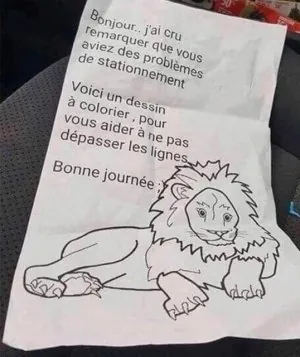 Bonjour.. j'ai cru
remarquer que vous
aviez des problèmes
de stationnement
Voici un dessin
à colorier , pour
vous aider à ne pas
dépasser les lignes
Bonne journée ;